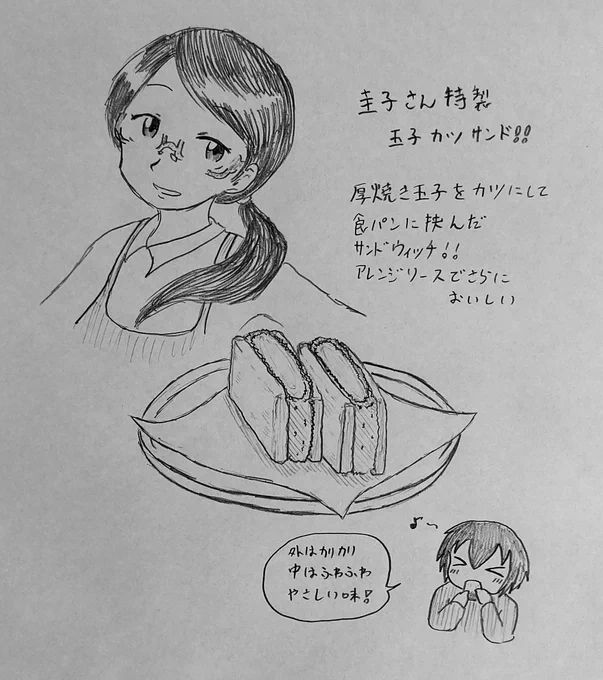 圭子さん特製
玉子カツサンド!!
厚焼き玉子をカツにして
食パンに挟んだ
サンドウィッチ!!
アレンジソースでさらに
おいしい
♪〜
外はカリカリ
中はふわふわ
やさしい味!